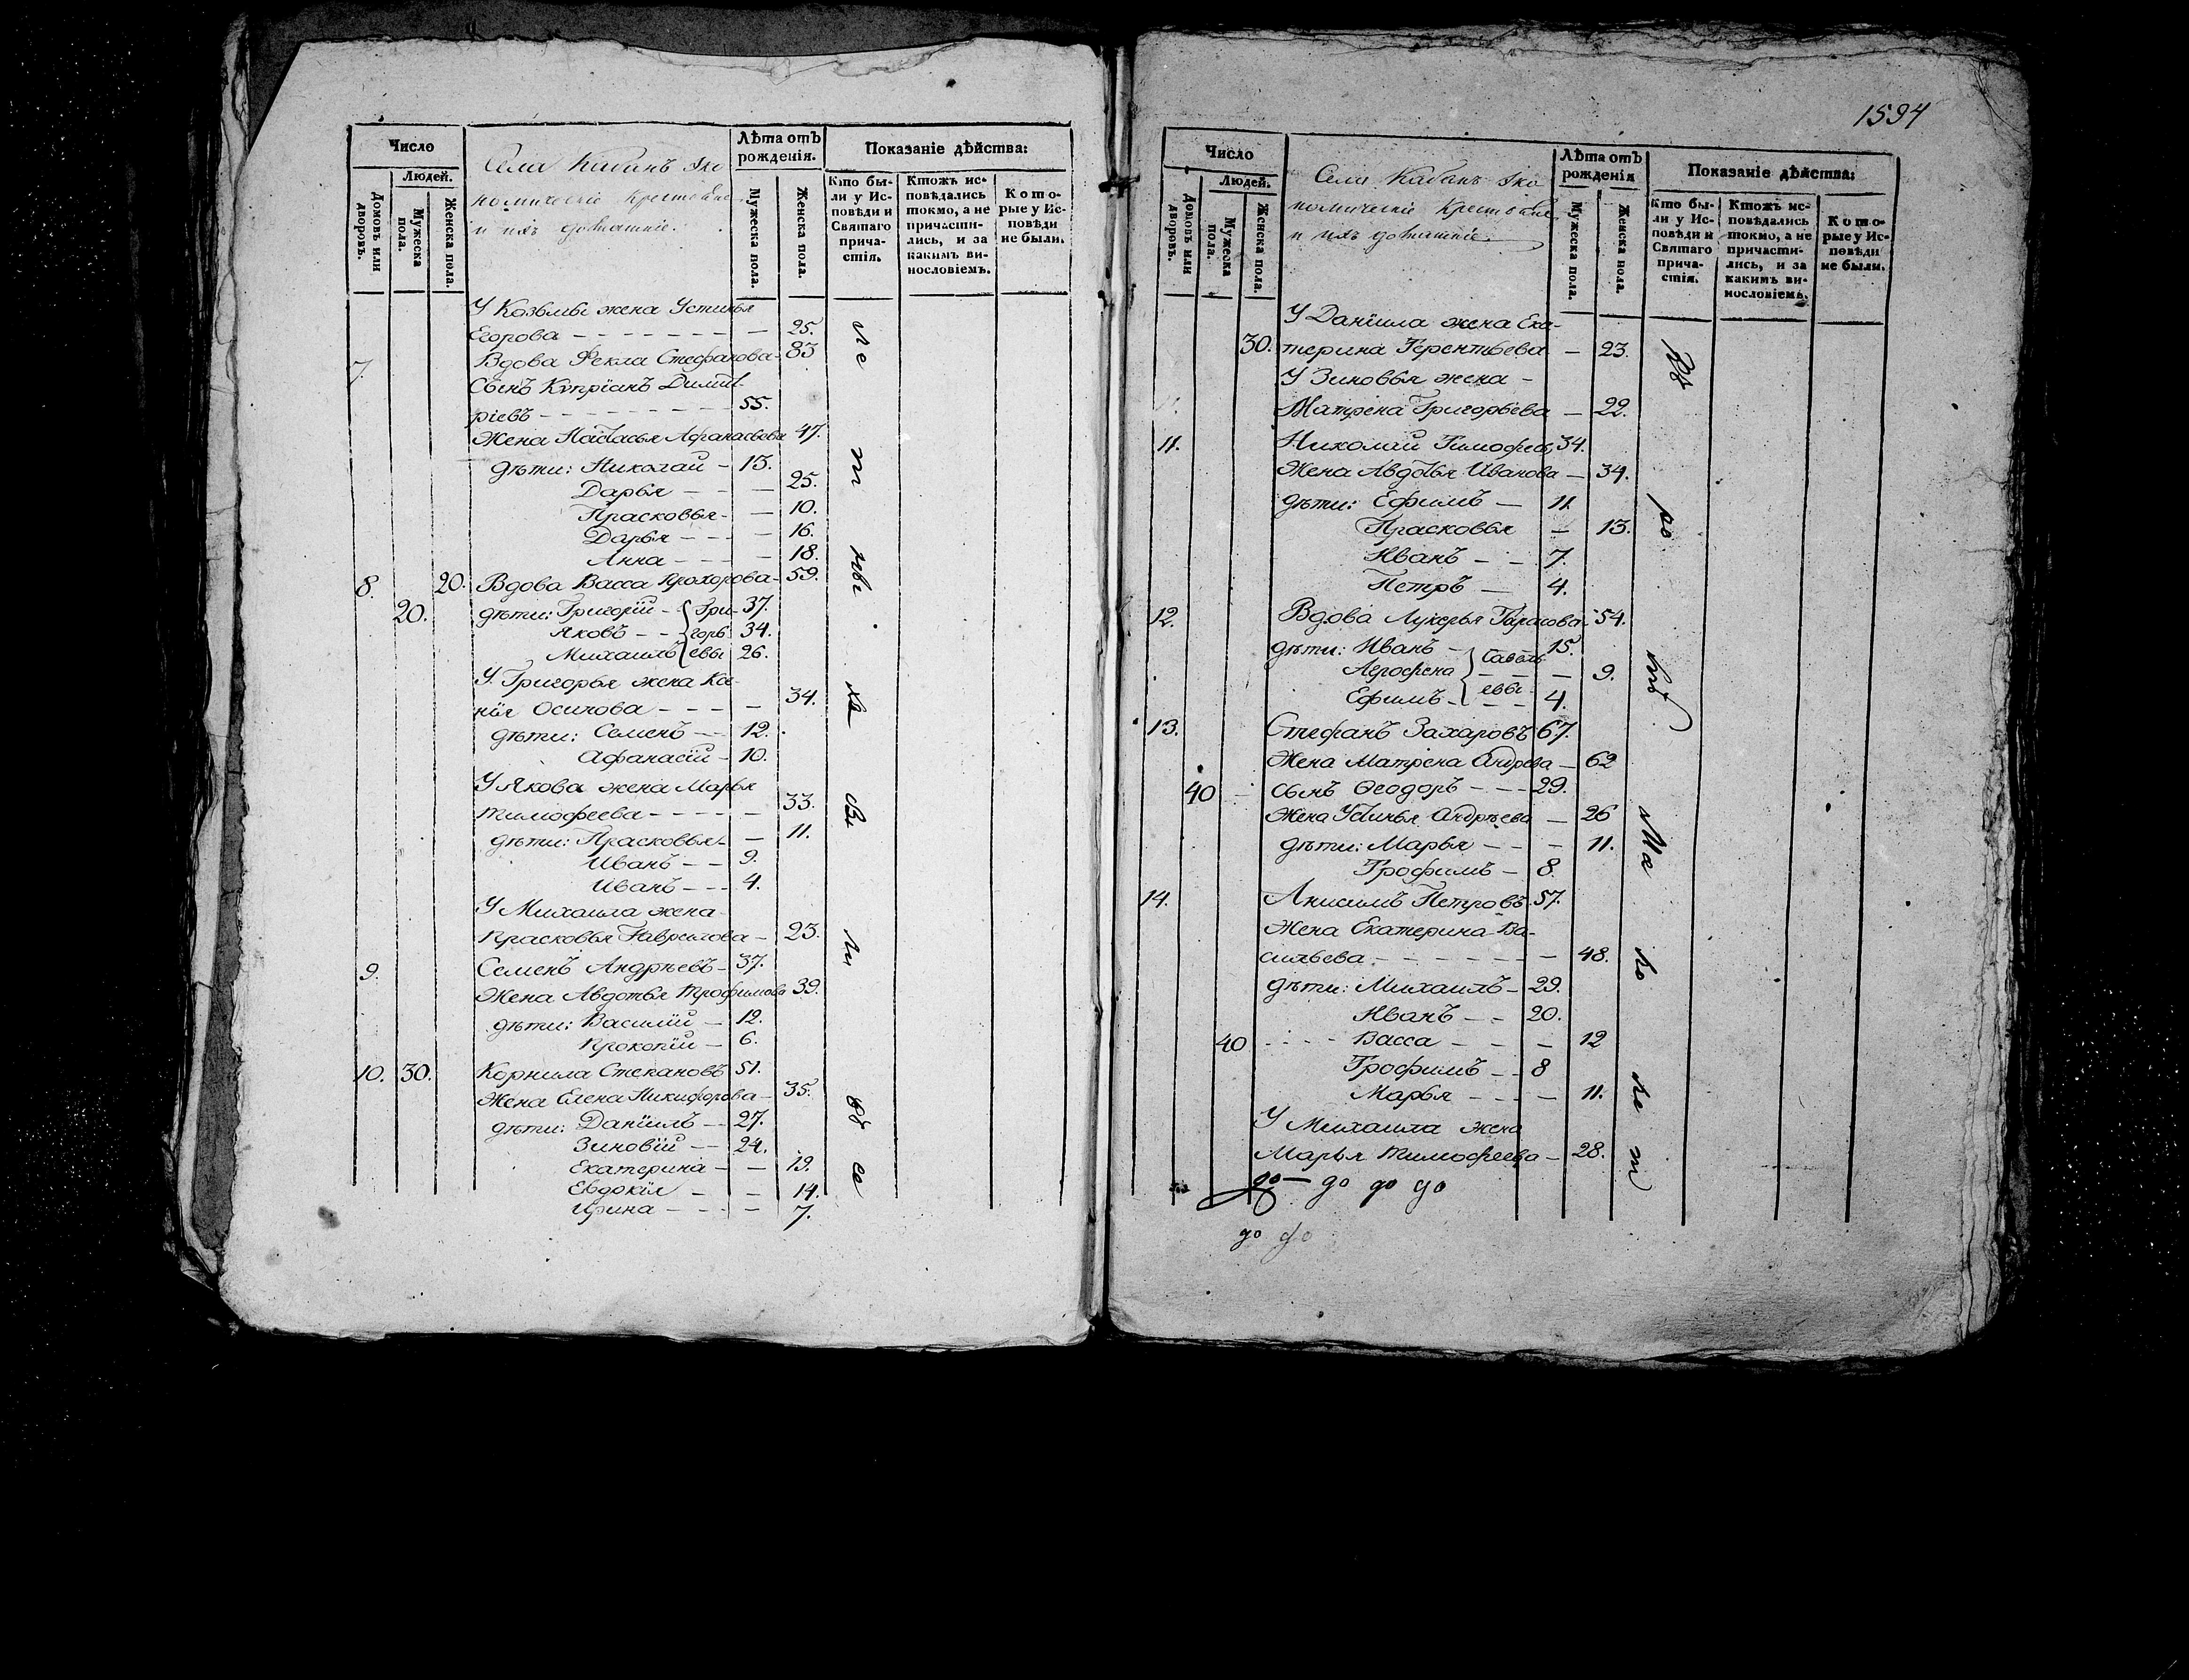 Число
Людей.
Домовъ или дворовъ.
Мужеска пола.
Женска пола.
Села Кабанъ Эко
номическіе крестьяне
и ихъ домашніе.
Лѣта отъ
рожденія.
Мужеска пола.
Женска пола.
Показаніе дѣйства:
Кто бы-
ли у Ис-
повѣди и
Святаго
прича-
стія.
Ктожъ ис-
повѣдались
токмо, а не
причасти-
лись, и за
какимъ ви-
нословіемъ.
Кото-
рые у Ис-
повѣди
не были.
У Козьмы жена Устинья
Егорова — 25.
7. Вдова Фекла Стефанова 83
Сынъ Купріанъ Димит-
ріевъ 55.
Жена Настасья Афанасьева 47.
дѣти: Николай 13.
Дарья — 25.
Прасковья — 10.
Дарья — 16.
Анна — 18.
8. 20. Вдова Васса Прохорова 59.
20. дѣти: Григорій { Гри- 37.
Яковъ { горь 34.
Михаилъ { евы 26.
У Григорья жена Ксе-
нія Осипова — 34.
дѣти: Семенъ 12.
Афанасій 10.
У Якова жена Марья
Тимофеева — 33.
дѣти: Прасковья — 11.
Иванъ 9.
Иванъ 4.
У Михаила жена
Прасковья Гаврилова — 23.
9. Семенъ Андрѣевъ 37.
Жена Авдотья Трофимова 39.
дѣти: Василій 12.
Прокопій 6.
10. 30. Корнила Степановъ 51.
Жена Елена Никифорова 35.
дѣти: Даніилъ 27.
Зиновій 24.
Екатерина — 19.
Евдокія — 14.
Ирина — 7.
1594
Число
Людей.
Домовъ или дворовъ.
Мужеска пола.
Женска пола.
Села Кабанъ Эко
номическіе крестьяне
и ихъ домашніе.
Лѣта отъ
рожденія
Мужеска пола.
Женска пола.
Показаніе дѣйства:
Кто бы-
ли у Ис-
повѣди и
Святаго
прича-
стія.
Ктожъ ис-
повѣдались
токмо, а не
причасти-
лись, и за
какимъ ви-
нословіемъ.
Кото-
рые у Ис-
повѣди
не были.
У Даніила жена Ека-
30. терина Терентьева — 23.
У Зиновья жена
Матрена Григорьева — 22.
11. Николай Тимофеевъ 34.
Жена Авдотья Иванова — 34.
дѣти: Ефимъ 11.
Прасковья — 13.
Иванъ 7.
Петръ 4.
12. Вдова Лукерья Тарасова 54.
дѣти: Иванъ { Савель 15.
Агрофена { — 9.
Ефимъ { евы 4.
13. Стефанъ Захаровъ 67.
Жена Матрена Андрева — 62
40 сынъ Ѳеодоръ 29.
Жена Устинья Андрѣева — 26
дѣти: Марья — 11.
Трофимъ 8.
14. Анисимъ Петровъ 57.
Жена Екатерина Ва-
сильева — 48.
дѣти: Михаилъ 29.
Иванъ 20.
40 Васса — 12
Трофимъ 8
Марья — 11.
У Михаила жена
Марья Тимофеева — 28.
до до до до
до до